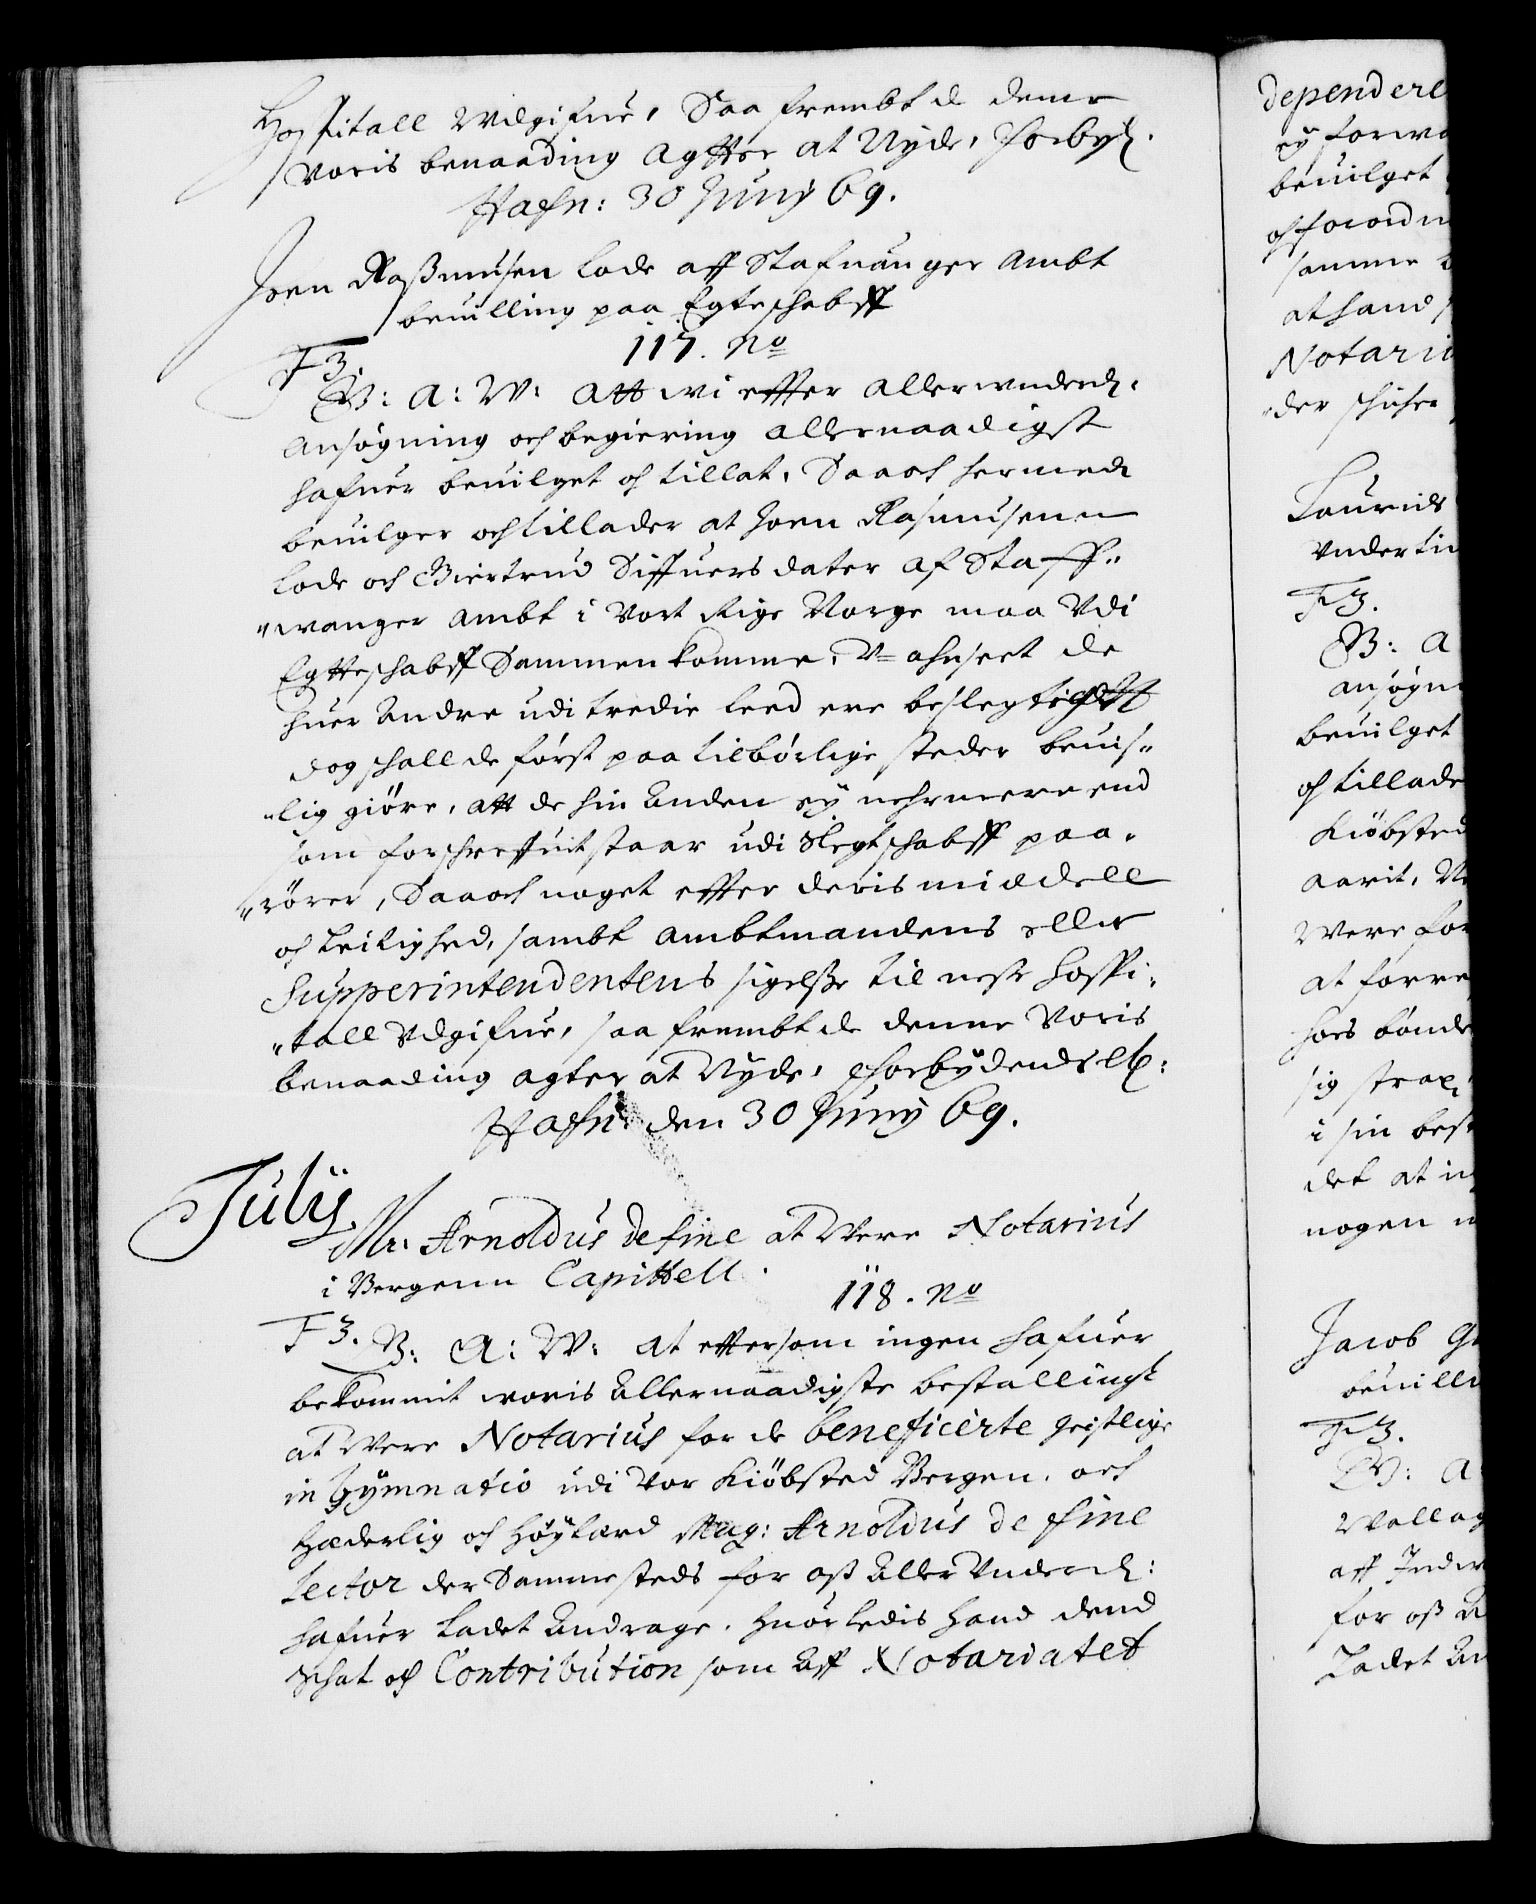 Hospitall Udgifue, Saa frembt de denne
Voris benaading agtter at Nyde, Forbyd.
Hafn: 30 Junij 69.
Joen Raßmusen Lode aff Stafuanger Ambt
beuilling paa Egteschabff
117. No
F 3.
G: A: W: Att wi effter allerunderd.
ansøgning och begiering allernaadigst
hafuer beuilget och tillat, Saa och hermed
beuilger och tillader at Joen Rasmusenn
Lode och Giertrud Siffuersdater af Staff„
„wanger Ambt i Vort Rige Norge maa Vdi
Egtteschabff Sammenkomme, V-ahnseet de
huer Andre udi tredie Leed ere beslegtiget
dog schall de først paa tilbørlige steder beuis„
„lig giøre, att de hin Anden ey nehrmere end
som forschreffuit staar udi Slegtschabff paa„
„rører, Saa och noget effter deris middell
och Leilighed, sambt Ambtmandens eller
Supperintendentens sigelße til neste Hospi„
„tall Udgifue, saa frembt de denne Voris
benaading agter at Nyde, Forbydendes etc:
Hafn: den 30 Junij 69.
Julij
Mr. Arnoldus de fine at Vere Notarius
i Bergenn Capittell.
118. No
F 3. G: A: W: at effersom ingen hafuer
bekommit woris Allernaadigste bestalling
at Vere Notarius for de beneficerte geistlige
in Gymnatio udi Vor Kiøbsted Bergen, och
Hæderlig och Høylærd Mag: Arnoldus de fine
Lector der Sammesteds for oß Aller Underd:
hafuer ladet Andrage, huorledis hand dend
Schat och Contribution som Aff Notariatet
dependere
ey forwa
beuilget
och forordn
samme
at hand
Notari
der
Laurids
Under
F 3.
G: A
ansøgn
beuilget
och tillade
Kiøbsted
aarit,
Vere for
at forre
hoes bønd
sig strax
i sin best
det at
nogen
Jacob
beuill
F 3.
G: A
aff
for oß A
Ladet An